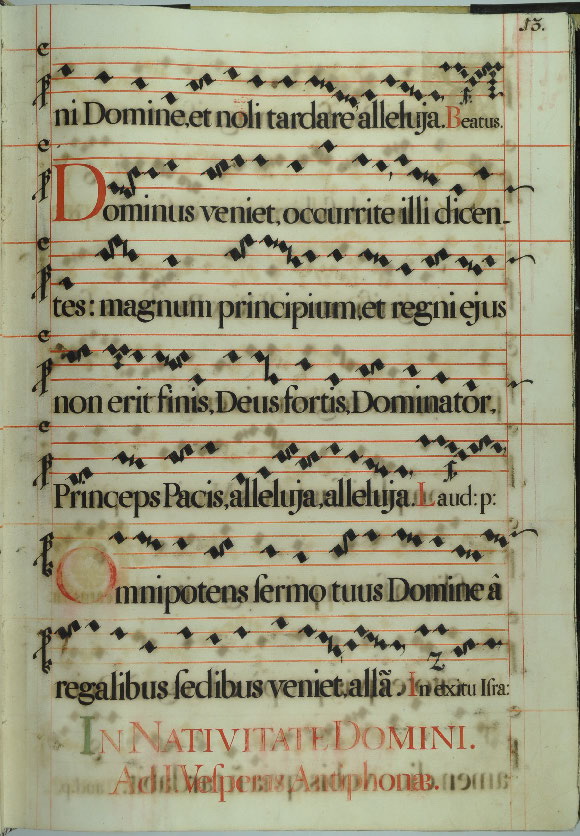 13.
ni Domine, et noli tardare alleluja. Beatus.
Dominus veniet, occurrite illi dicen-
tes: magnum principium, et regni ejus
non erit finis, Deus fortis, Dominator,
Princeps Pacis, alleluja, alleluja. Laud: p:
Omnipotens sermo tuus Domine à
regalibus sedibus veniet, allã. In exitu Isra:
IN NATIVITATE DOMINI.
Ad II Vesperas, Antiphonæ.